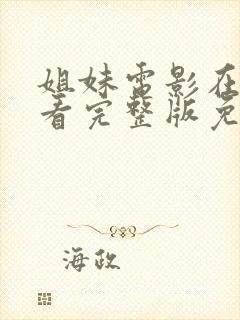 姐妹电影在
看完整版免
海政